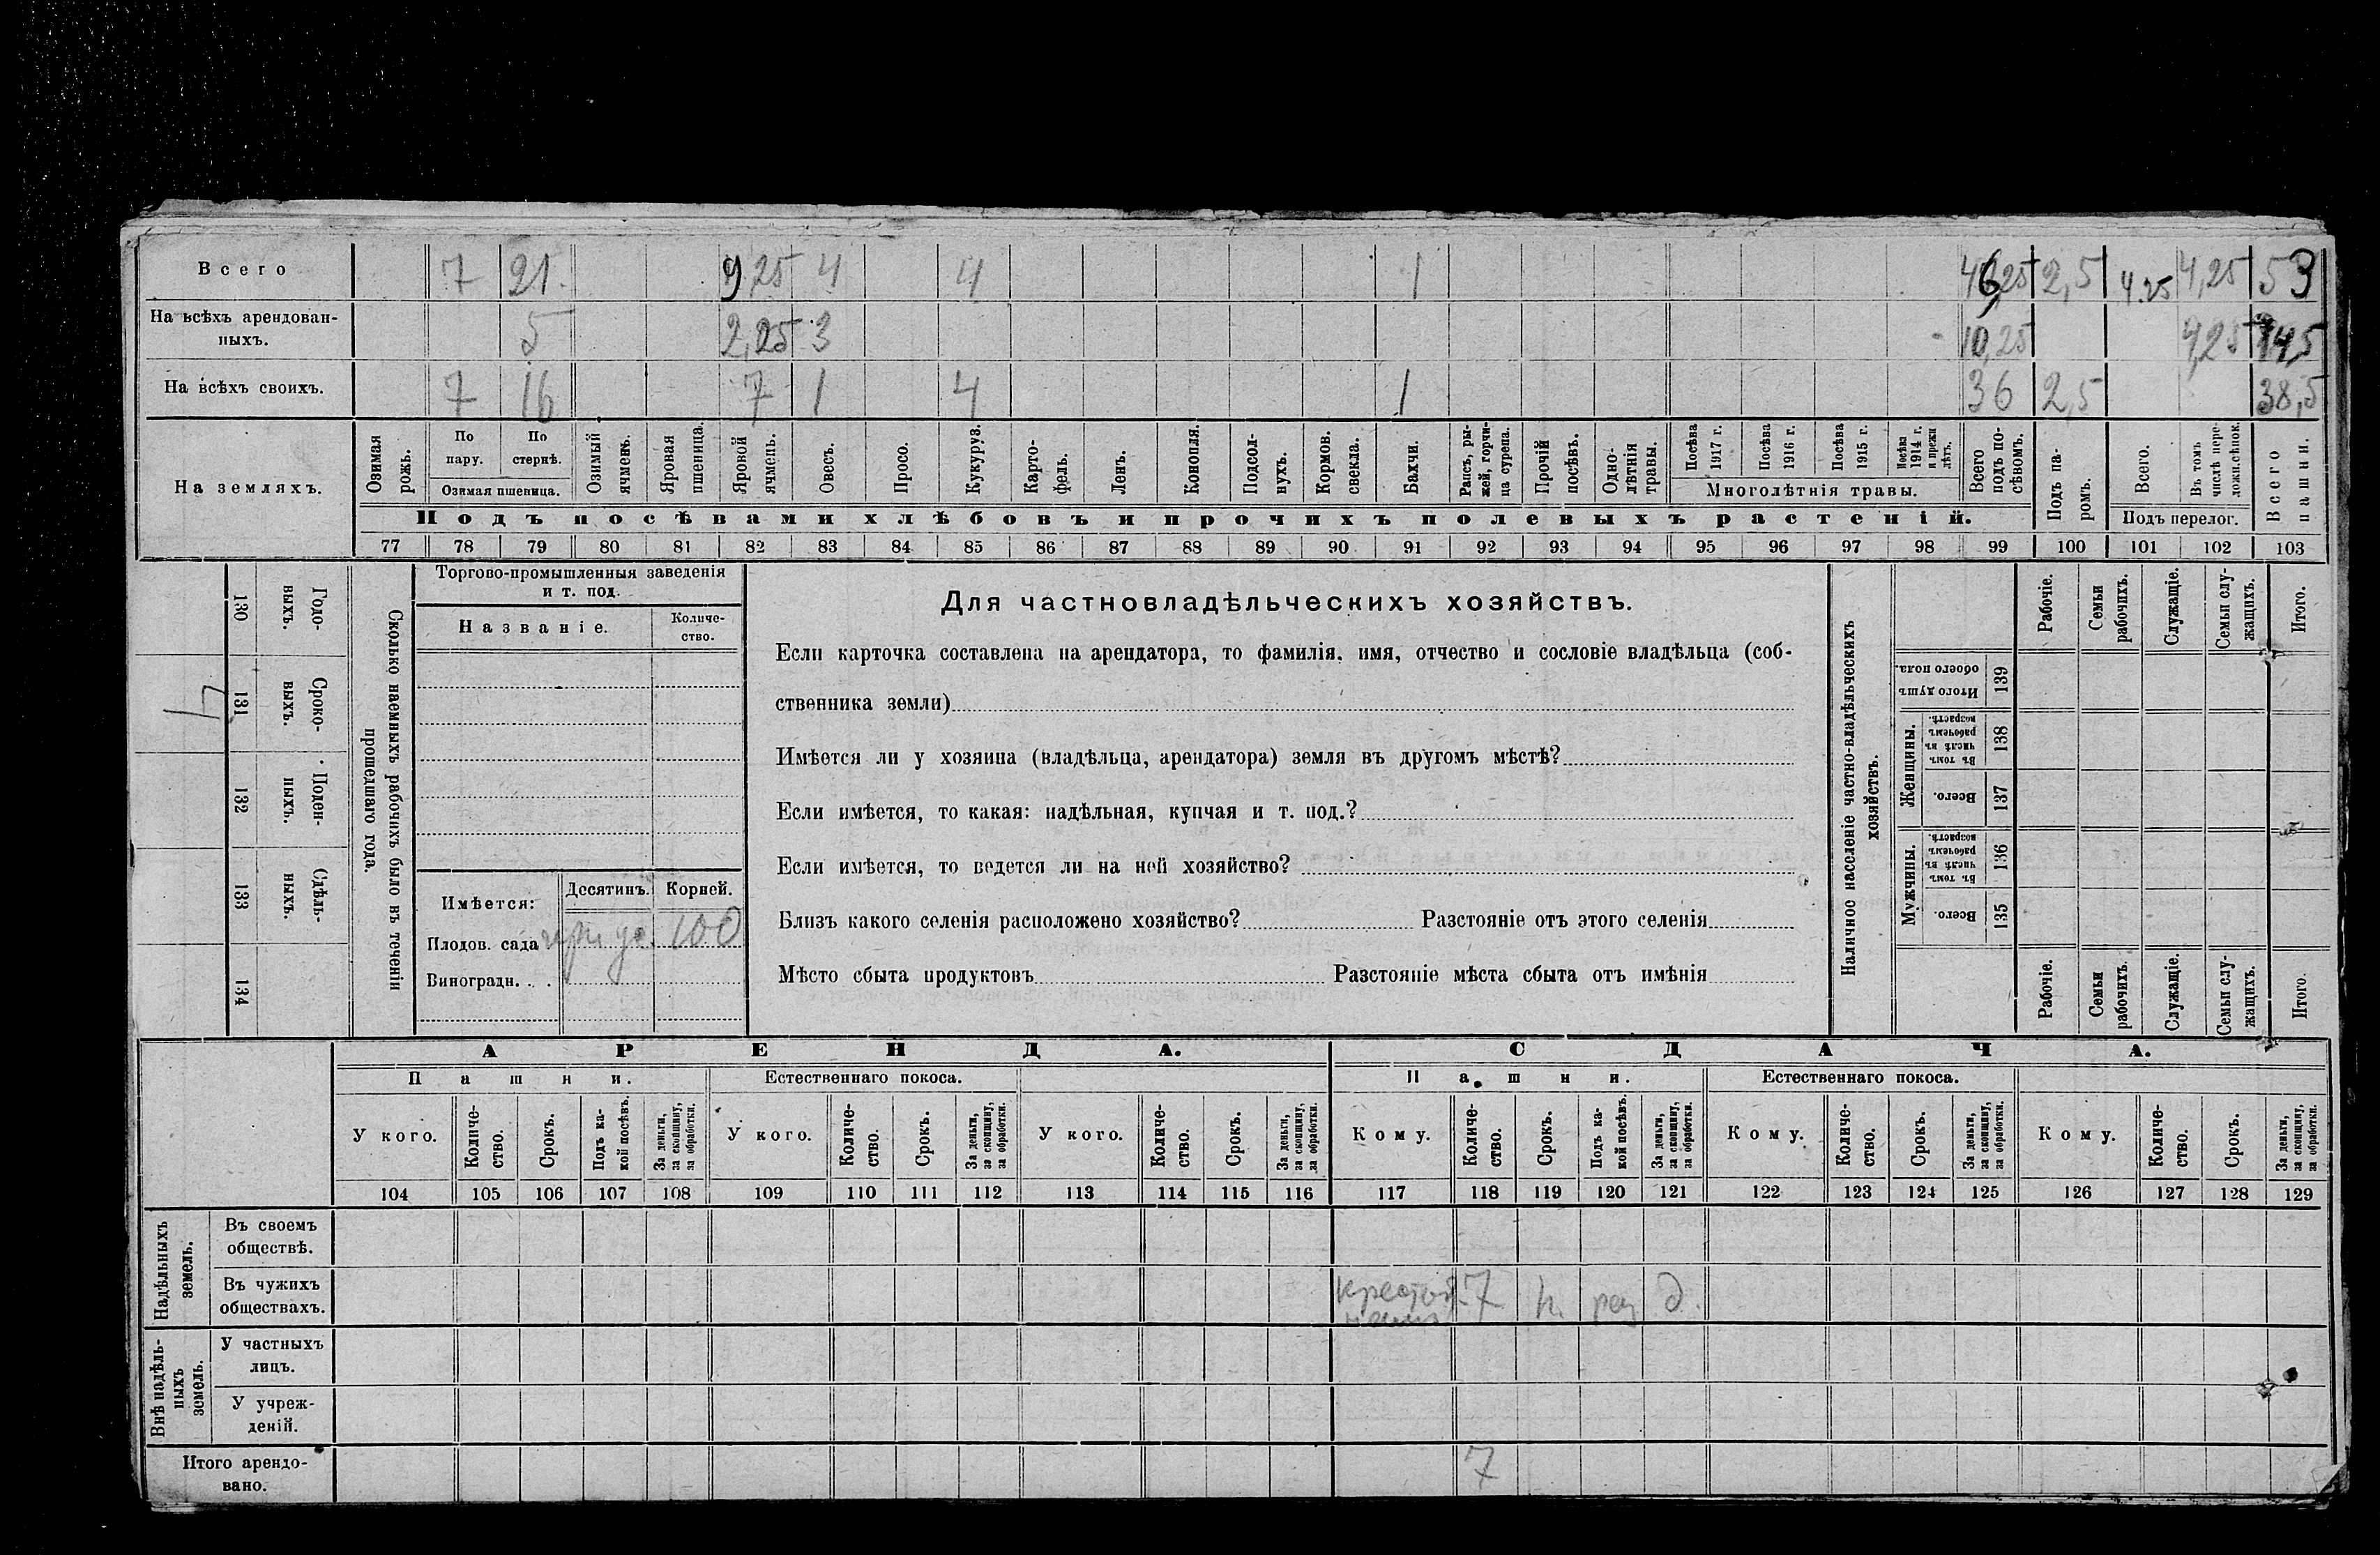 Всего 7 21. 9,25 4 4 1 46,25 2,5 4.25 4,25 53
На всѣхъ арендован-
ныхъ. 5 2,25 3 10,25 4,25 14,5
На всѣхъ своихъ. 7 16 7 1 4 1 36 2,5 38,5
На земляхъ.
Озимая рожь.
По пару.
По стернѣ.
Озимая пшеница.
Озимый ячмень.
Яровая пшеница.
Яровой ячмень.
Овесъ.
Просо.
Кукуруз.
Карто-
фель.
Ленъ.
Конопля.
Подсол-
нухъ.
Кормов.
свекла.
Бахчи.
Рапсъ, ры-
жей, горчи-
ца сурепа.
Прочій
посѣвъ.
Одно-
лѣтнія
травы.
Посѣва
1917 г.
Посѣва
1916 г.
Посѣва
1915 г.
Посѣва
1914 г.
и прежн
лѣтъ.
Многолѣтнія травы.
Всего
подъ по-
сѣвомъ.
Подъ па-
ромъ.
Всего.
Въ томъ
числѣ пере-
ложн.сѣнок.
Подъ перелог.
Всего
пашни.
Подъ посѣвами хлѣбовъ и прочихъ полевыхъ растеній.
77 78 79 80 81 82 83 84 85 86 87 88 89 90 91 92 93 94 95 96 97 98 99 100 101 102 103
130 Годо-
выхъ.
131 Сроко-
выхъ.
132 Поден-
ныхъ.
133 Сдѣль-
ныхъ.
134
Сколько наемныхъ рабочихъ было въ теченіи
прошедшаго года.
Торгово-промышленныя заведенія
и т. под.
Названіе.
Количе-
ство.
Имѣется:
Десятинъ.
Корней.
Плодов. сада при ус. 100
Виноградн. . .
Для частновладѣльческихъ хозяйствъ.
Если карточка составлена на арендатора, то фамилія, имя, отчество и сословіе владѣльца (соб-
ственника земли)
Имѣется ли у хозяина (владѣльца, арендатора) земля въ другомъ мѣстѣ?
Если имѣется, то какая: надѣльная, купчая и т. под.?
Если имѣется, то ведется ли на ней хозяйство?
Близъ какого селенія расположено хозяйство? Разстояніе отъ этого селенія
Мѣсто сбыта продуктовъ Разстояніе мѣста сбыта отъ имѣнія
Наличное населеніе частно-владѣльческихъ
хозяйствъ.
Рабочіе.
Семьи
рабочихъ.
Служащіе.
Семьи слу-
жащихъ.
Итого.
Итого душъ
обоего пола.
139
Женщины.
Въ томъ
числѣ въ
рабочемъ
возрастѣ.
138
Всего.
137
Мужчины.
Въ томъ
числѣ въ
рабочемъ
возрастѣ.
136
Всего.
135
Рабочіе.
Семьи
рабочихъ.
Служащіе.
Семьи слу-
жащихъ.
Итого
АРЕНДА. СДАЧА.
Пашни. Естественнаго покоса. Пашни. Естественнаго покоса.
У кого.
Количе-
ство.
Срокъ.
Подъ ка-
кой посѣвъ.
За деньги,
за скопщину,
за обработки.
У кого.
Количе-
ство.
Срокъ.
За деньги,
за скопщину,
за обработки.
У кого.
Количе-
ство.
Срокъ.
За деньги,
за скопщину,
за обработки.
Кому.
Количе-
ство.
Срокъ.
Подъ ка-
кой посѣвъ.
За деньги,
за скопщину,
за обработки.
Кому.
Количе-
ство.
Срокъ.
За деньги,
за скопщину,
за обработки.
Кому.
Количе-
ство.
Срокъ.
За деньги,
за скопщину,
за обработки.
104 105 106 107 108 109 110 111 112 113 114 115 116 117 118 119 120 121 122 123 124 125 126 127 128 129
Надѣльныхъ
земель.
Въ своемъ
обществѣ.
Въ чужихъ
обществахъ. 7 д.
Внѣ надѣль-
ныхъ
земель.
У частныхъ
лицъ.
У учреж-
деній.
Итого арендо-
вано. 7